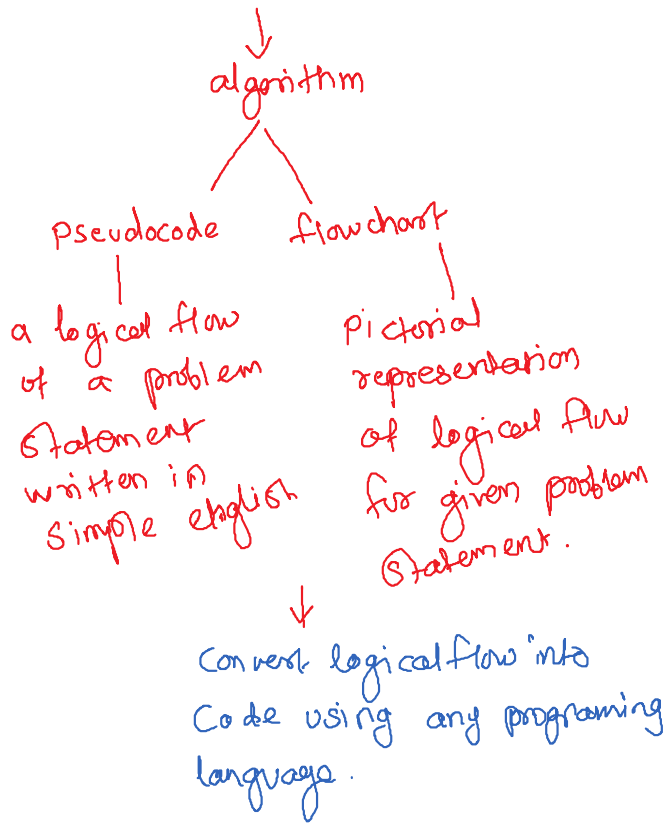 algorithm
pseudocode
flowchart
a logical flow
of a problem
statement
written in
simple english
Pictorial
representation
of logical flow
for given problem
statement.
Convert logical flow into
Code using any programing
language.